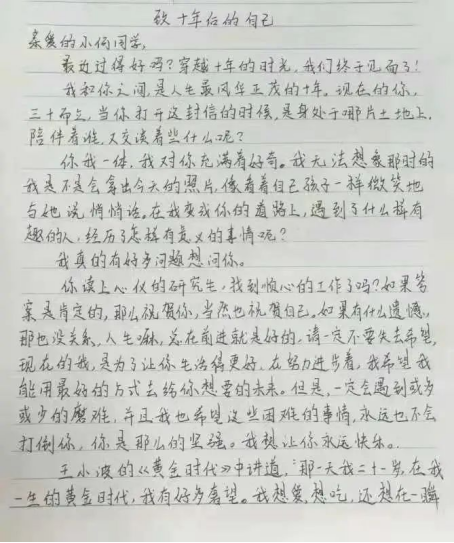 致十年后的自己
亲爱的小何同学,
最近过得好吗?穿越十年的时光,我们终于见面了!
我和你之间,是人生最风华正茂的十年。现在的你,
三十而立,当你打开这封信的时候,是身处于哪片土地上,
陪伴着谁,又交谈着些什么呢?
你我一体,我对你充满着好奇。我无法想象那时的
我是不是会拿出今天的照片,像看着自己孩子一样微笑地
与她说悄悄话。在我变成你的道路上,遇到了什么样有
趣的人,经历了怎样有意义的事情呢?
我真的有好多问题想问你。
你读上心仪的研究生,找到顺心的工作了吗?如果答
案是肯定的,那么祝贺你,当然也祝贺自己。如果有什么遗憾,
那也没关系,人生嘛,总在前进就是好的,请一定不要失去希望,
现在的我,是为了让你生活得更好,在努力进步着,我希望我
能用最好的方式去给你想要的未来。但是,一定会遇到或多
或少的磨难,并且我也希望这些困难的事情,永远也不会
打倒你,你是那么的坚强。我想让你永远快乐。
王小波的《黄金时代》中讲道,“那一天我二十一岁,在我
一生的黄金时代,我有好多奢望。我想爱,想吃,还想在一瞬